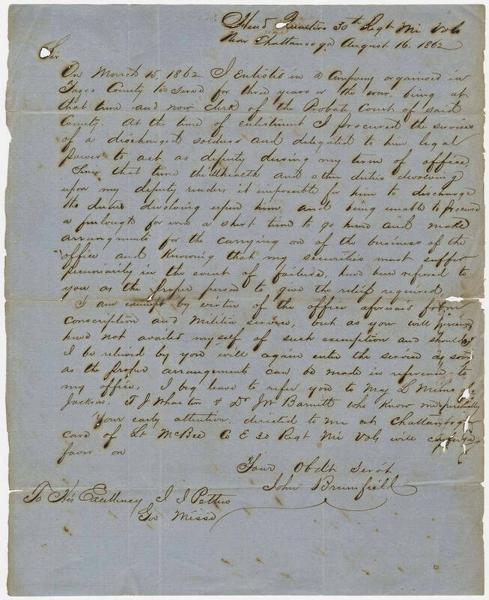 Head Quarters 30th Regt Mi Vols
Near Chattanooga August 16, 1862
Sir
On March 15, 1862 I Enlisted in a Company organised in
County to serve for three years or the war, being at
that time and now Clerk of the Probate Court of said
County. At the time of enlistment I procured the services
of a discharged soldier and delegated to him legal
power to act as deputy during my term of office
Since that time and other duties devolving
upon my deputy renders it impossible for him to discharge
the duties devolving upon him, and being unable to procure
a furlough for even a short time to go home and make
arrangements for the carrying on of the business of the
office and knowing that my securities must suffer
pecuniarily in the event of failure, have been referred to
you as the proper person to give the relief required
I am exempt by virtue of the office aforesaid from
conscription and Militia service, but as you will perceive
have not availed myself of such exemption and should
I be relieved by you will again enter the service as soon
as the proper arrangements can be made in reference to
my office, I beg leave to refer you to
Jackson, T J Wharton & Dr J W Barnett who know me personally
Your early attention directed to me at Chattanooga
care of Lt McBee Co E 30 Regt Mi Vols will
favor on
Your Obdt Servt
John Brumfield
To His Excellency J J Pettus
Gov Missi